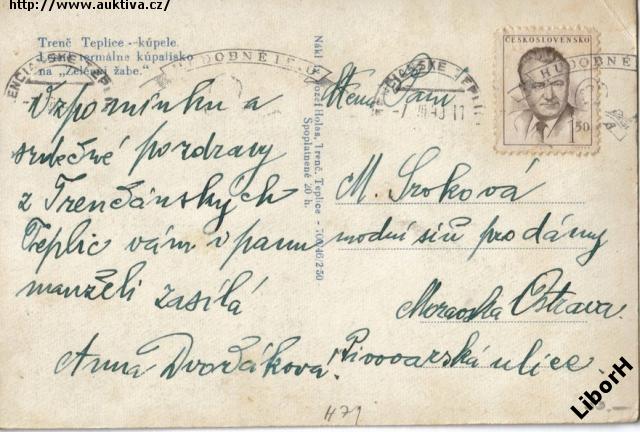 http://www.auktiva.cz/
Trenč Teplice - kúpele.
Letné termálne kúpalisko
na „Zelenej žabe."
Vzpomínku a
srdečné pozdravy
z Trenčánských
Teplic vám i panu
manželi zasílá
Anna Dvořáková.
Nákl. Jozef Holas, Trenč. Teplice - 700/46/2·50
Spoplatnené 20 h.
TRENČIANSKE TEPLICE
HUDOBNÉ LETO
ČESKOSLOVENSKO
1 50
Paní
M. Sroková
modní síň pro dámy
Moravská Ostrava
Pivovarská ulice.
H79
LiborH